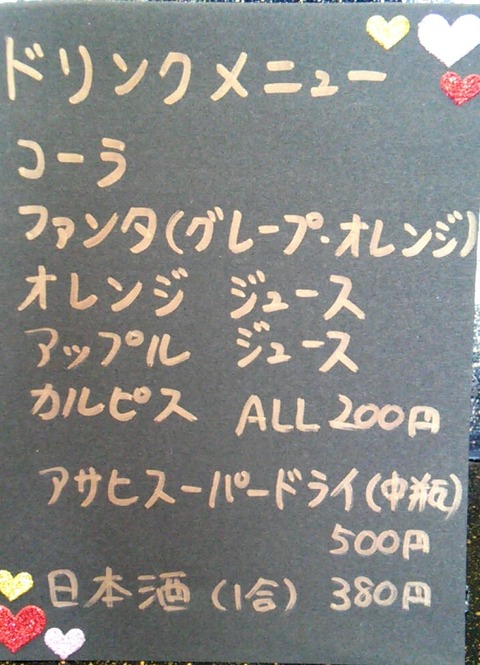 ドリンクメニュー
コーラ
ファンタ(グレープ・オレンジ)
オレンジ ジュース
アップル ジュース
カルピス ALL 200円
アサヒスーパードライ(中瓶)
500円
日本酒(1合) 380円